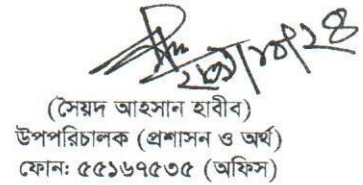 (সৈয়দ আহসান হাবীব)
উপপরিচালক (প্রশাসন ও অর্থ)
ফোন: ৫৫১৬৭৫৩৫ (অফিস)